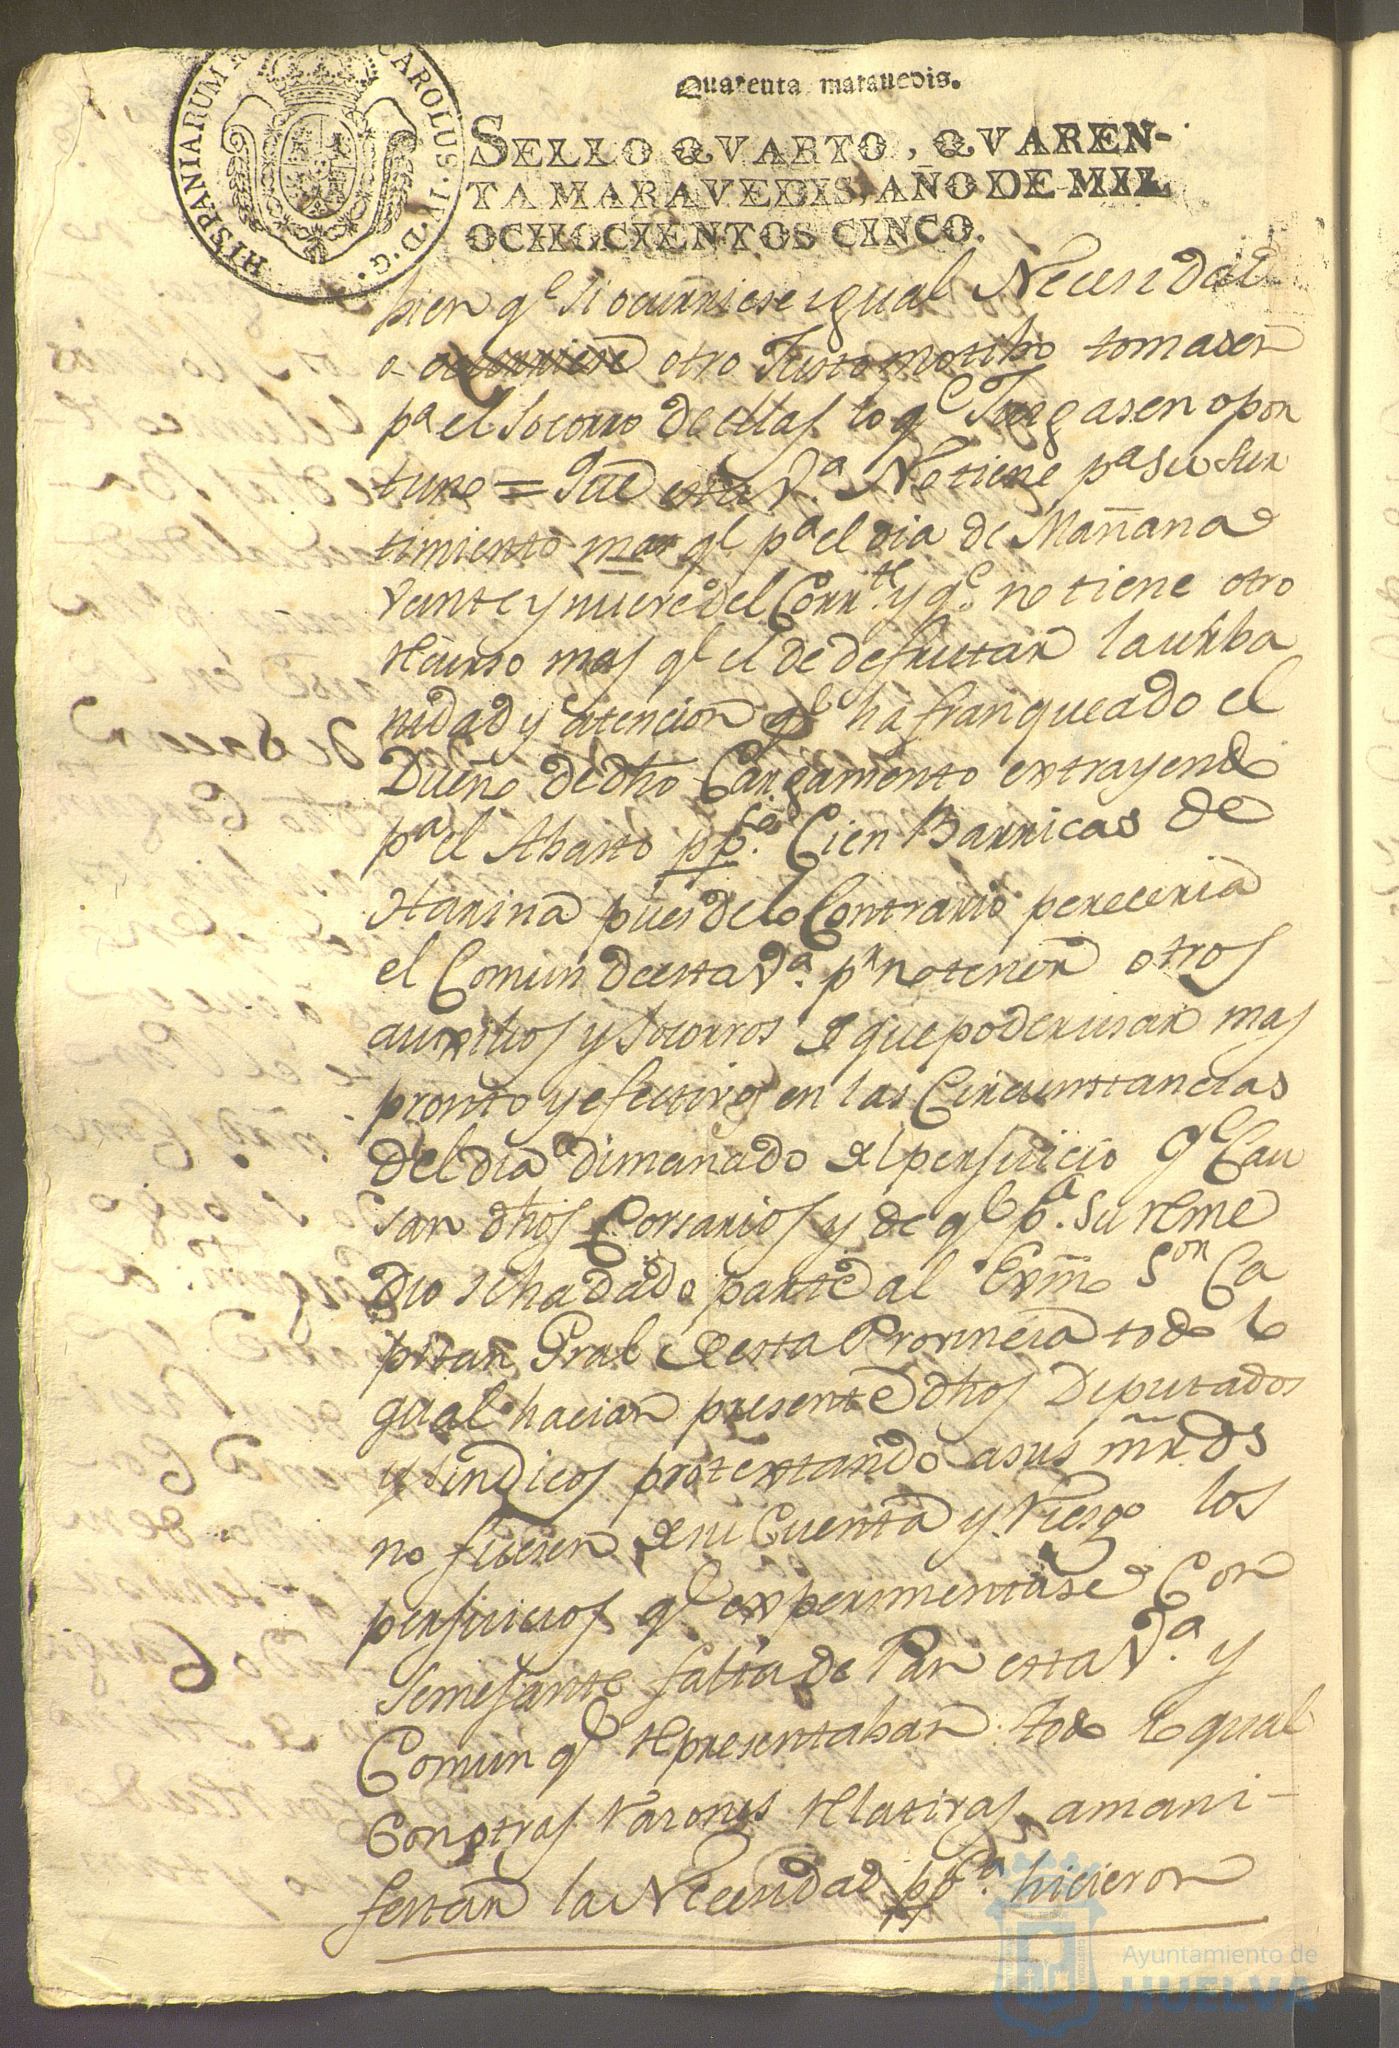 Quarenta maravedis.
HISPANIARUM R CAROLUS·IV·D·G·
SELLO QVARTO, QVAREN-
TA MARAVEDIS, AÑO DE MIL
OCHOCIENTOS CINCO.
bien qe. si ocurriese igual Necesidad
o otro Justo motibo tomasen
pa el socorro de ellas lo qe Juzgasen opor
tuno = Que esta Va. No tiene pa su sur
timiento mas qe pa el dia de Mañana
Veinte y nueve del Corrte. y qe. no tiene otro
recurso mas qe el de desfrutar la urba
nidad y atencion qe ha franqueado el
Dueño de dho Cargamento extrayendo
pa el Abasto ppco. Cien Barricas de
Harina pues de lo Contrario pereceria
el Comun de esta Va. pr no tener otros
auxilios y socorros de que poder usar mas
pronto y efectivos en las Circunstancias
del dia dimanado del perjuicio qe Cau
san dhos Corsarios y de qe pa. su reme
dio se ha dado parte al Exmo Sor Ca
pitan Gral de esta Provincia todo lo
qual hacian presente dhos Diputados
y sindicos protextando a sus mrds
no fuesen de su Cuenta y Riesgo los
perjuicios qe experimentase Con
semejante falta de Pan esta Va. y
Comun qe representaban todo lo qual
Con otras razones relativas a mani-
festar la Necesidad ppca. hicieron
Ayuntamiento de
HUELVA